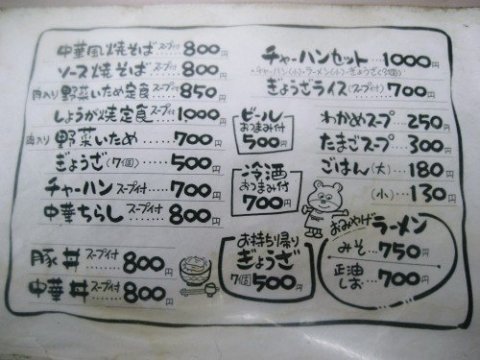 中華風焼そば スープ付 800円
ソース焼そば スープ付 800円
肉入り野菜いため定食 スープ付 850円
しょうが焼定食 スープ付 1000円
肉入り野菜いため 700円
ぎょうざ(7個) 500円
チャーハン スープ付 700円
中華ちらし スープ付 800円
豚丼 スープ付 800円
中華丼 スープ付 800円
ビール
おつまみ付
500円
冷酒
おつまみ付
700円
お持ち帰り
ぎょうざ
7個 500円
チャーハンセット… 1000円
ぎょうざライス(スープ付) 700円
わかめスープ 250円
たまごスープ… 300円
ごはん(大)… 180円
(小)… 130円
おみやげラーメン
みそ… 750円
正油
しお… 700円